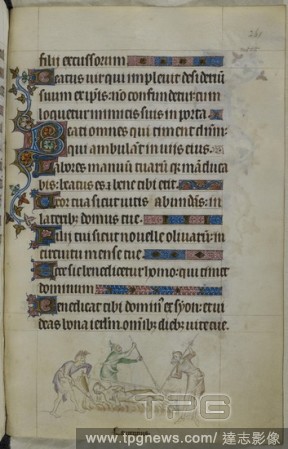 261
filii excussorum
Beatus vir qui impleuit desideriū
suum ex ip̄is: nō confundetur: cum
loquetur inimicis suis in porta
Beati omnes qui timent dn̄m:
qui ambulāt in uijs eius
Labores manuū tuarū qͥ māduca
bis: beatus es ⁊ bene tibi erit
Uxor tua sicut uitis abundās: in
laterib: domus tue
Filij tui sicut nouelle oliuarū: in
circuitu mense tue
Ecce sic benedicetur homo: qui timet
dominum
Benedicat tibi domin' ex syon: et ui
deas bona ierlm̄ om̄ib: dieb: uite tue
TPG
www.tpgnews.com / 達志影像